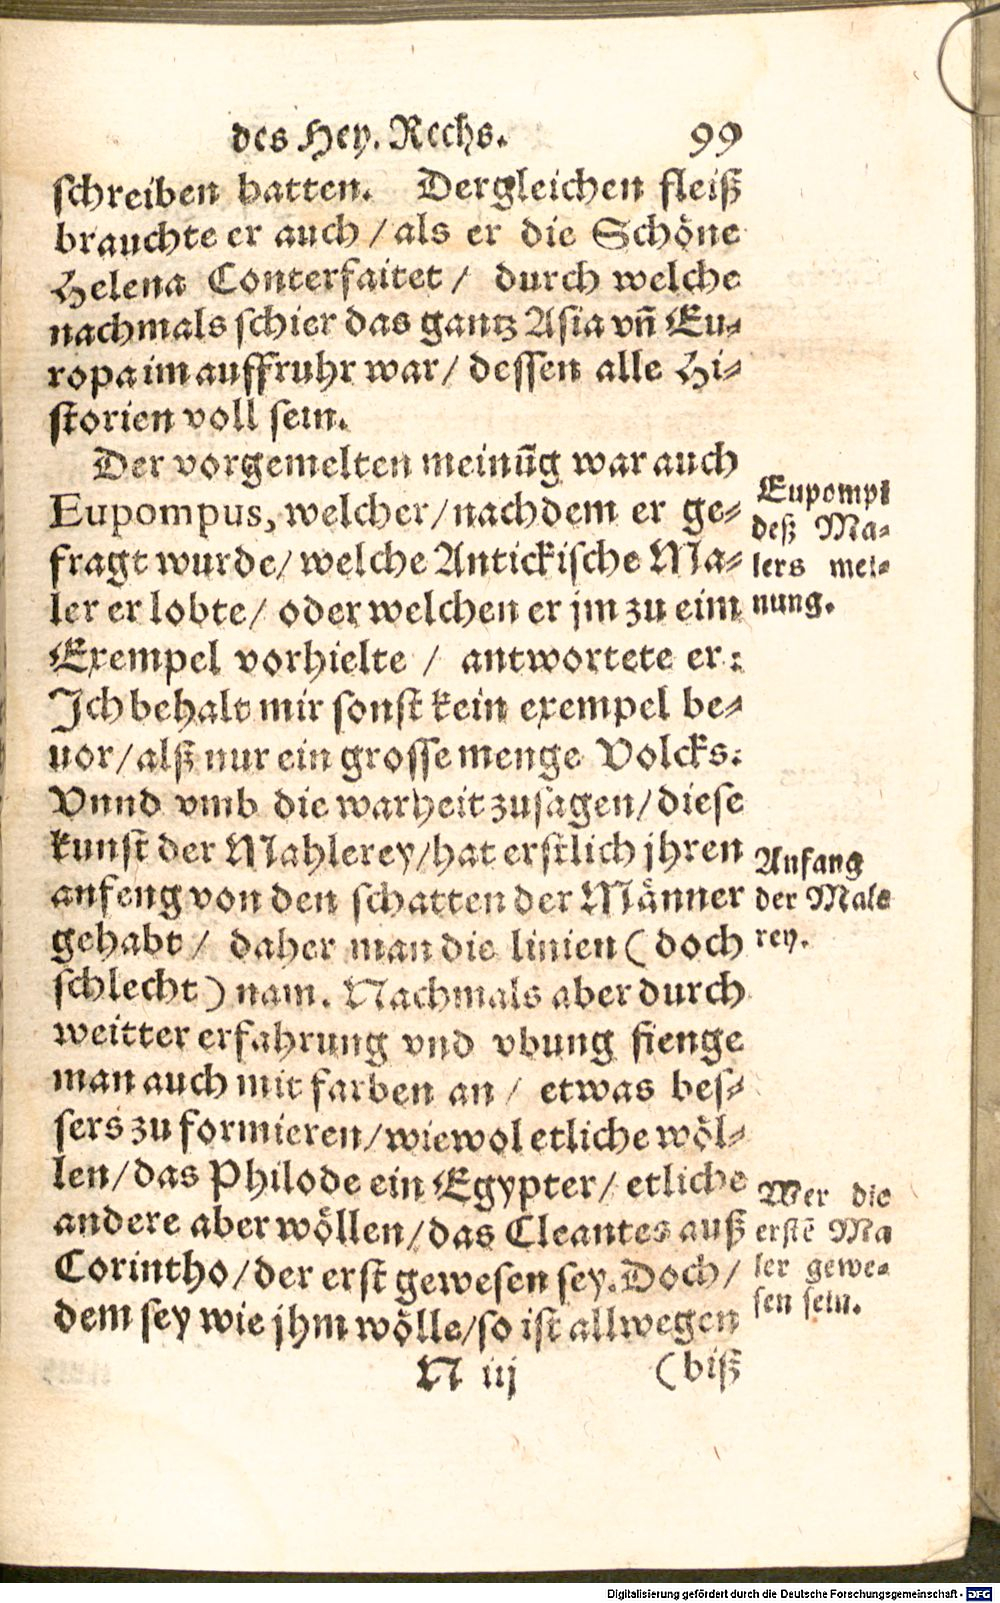 des Hey. Rechs. 99
schreiben hatten. Dergleichen fleiß
brauchte er auch / als er die Schöne
Helena Conterfaitet / durch welche
nachmals schier das gantz Asia vñ Eu⸗
ropa im auffruhr war / dessen alle Hi⸗
storien voll sein.
Der vorgemelten meinũg war auch
Eupompus, welcher / nachdem er ge⸗
fragt wurde / welche Antickische Ma⸗
ler er lobte / oder welchen er jm zu eim
Exempel vorhielte / antwortete er:
Ich behalt mir sonst kein exempel be⸗
uor / alß nur ein grosse menge Volcks:
Vnnd vmb die warheit zusagen / diese
kunst der Mahlerey / hat erstlich jhren
anfeng von den schatten der Männer
gehabt / daher man die linien ( doch
schlecht ) nam. Nachmals aber durch
weitter erfahrung vnd vbung fienge
man auch mit farben an / etwas bes⸗
sers zu formieren / wiewol etliche wöl⸗
len / das Philode ein Egypter / etliche
andere aber wöllen / das Cleantes auß
Corintho / der erst gewesen sey. Doch /
dem sey wie jhm wölle / so ist allwegen
N iij (biß
Eupompi
deß Ma⸗
lers mei⸗
nung.
Anfang
der Male
rey.
Wer die
erstẽ Ma
ler gewe⸗
sen sein.
Digitalisierung gefördert durch die Deutsche Forschungsgemeinschaft - DFG